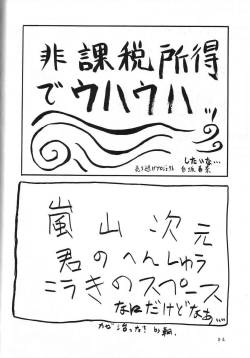 非課税所得
でウハウハ
したいな…
嵐山次元
君のへんしゅう
こうきのスペース
なロだけどなあ…